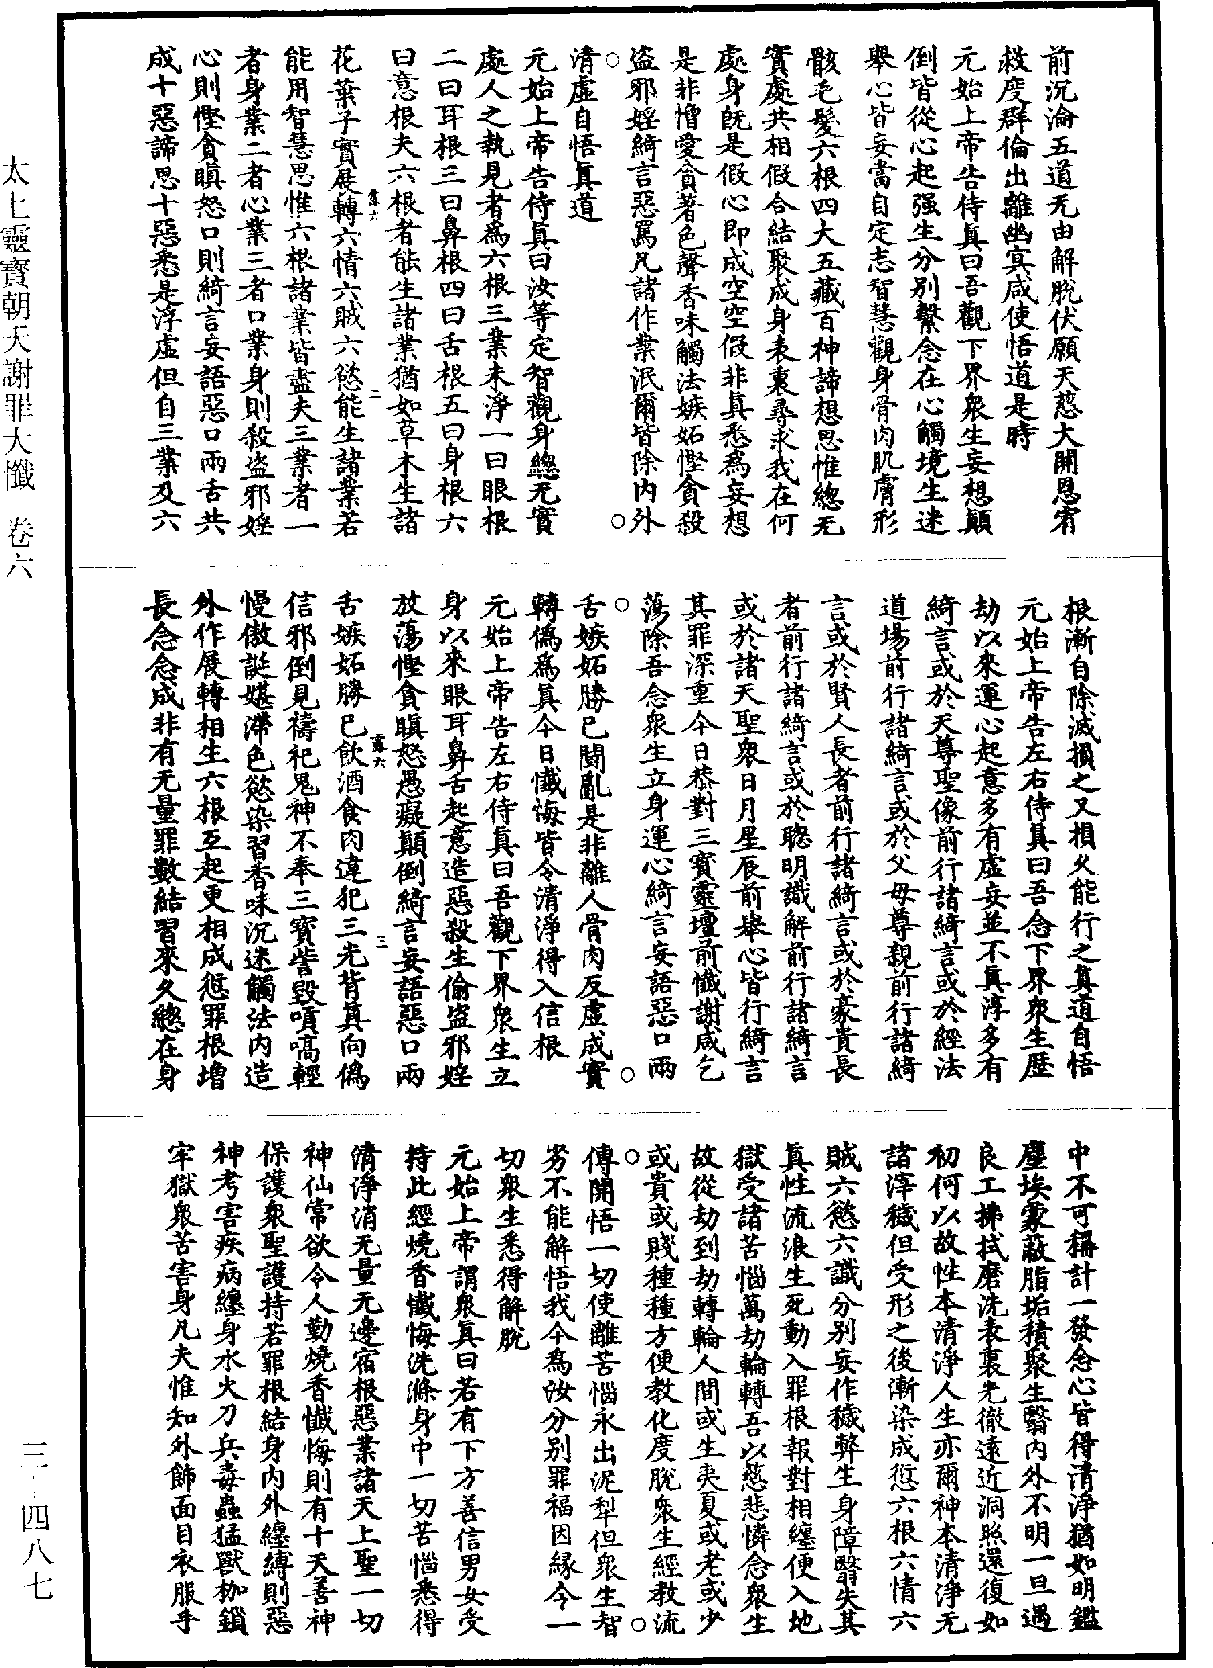 太上靈寶朝天謝罪大懺　卷六
三—四八七
前沉淪五道无由解脫伏願天慈大開恩宥
救度群倫出離幽冥咸使悟道是時
元始上帝告侍真曰吾觀下界衆生妄想顛
倒皆從心起强生分別繫念在心觸境生迷
舉心皆妄當自定志智慧觀身骨肉肌膚形
骸毛髮六根四大五藏百神諦想思惟總无
實處共相假合結聚成身表裏尋求我在何
處身既是假心即成空空假非真悉為妄想
是非憎愛貪著色聲香味觸法嫉妬慳貪殺
盜邪婬綺言惡罵凡諸作業泯爾皆除内外
清虛自悟真道
元始上帝告侍真曰汝等定智觀身總无實
處人之執見者為六根三業未淨一曰眼根
二曰耳根三曰鼻根四曰舌根五曰身根六
曰意根夫六根者能生諸業猶如草木生諸
露六　二
花葉子實展轉六情六賊六慾能生諸業若
能用智慧思惟六根諸業皆盡夫三業者一
者身業二者心業三者口業身則殺盜邪婬
心則慳貪瞋怒口則綺言妄語惡口兩舌共
成十惡諦思十惡悉是浮虛但自三業及六
根漸自除滅損之又損久能行之真道自悟
元始上帝告左右侍真曰吾念下界衆生歷
劫以來運心起意多有虛妄並不真淳多有
綺言或於天尊聖像前行諸綺言或於經法
道場前行諸綺言或於父母尊親前行諸綺
言或於賢人長者前行諸綺言或於豪貴長
者前行諸綺言或於聰明識解前行諸綺言
或於諸天聖衆日月星辰前舉心皆行綺言
其罪深重今日恭對三寶靈壇前懺謝咸乞
蕩除吾念衆生立身運心綺言妄語惡口兩
舌嫉妬勝已鬭亂是非離人骨肉反虛成實
轉偽為真今日懺悔皆令清淨得入信根
元始上帝告左右侍真曰吾觀下界衆生立
身以來眼耳鼻舌起意造惡殺生偷盜邪婬
放蕩慳貪瞋怒愚癡顛倒綺言妄語惡口兩
露六　三
舌嫉妬勝已飲酒食肉違犯三光背真向偽
信邪倒見禱祀鬼神不奉三寶訾毀嗔嗃輕
慢傲誕媒滯色慾染習香味沉迷觸法内造
外作展轉相生六根互起更相成愆罪根增
長念念成非有无量罪數結習來久總在身
中不可稱計一發念心皆得清淨猶如明鑑
塵埃蒙蔽脂垢積聚生翳内外不明一旦遇
良工拂拭磨洗表裏光徹遠近洞照還復如
初何以故性本清淨人生亦爾神本清淨无
諸滓穢但受形之後漸染成愆六根六情六
賊六慾六識分別妄作穢弊生身障翳失其
真性流浪生死動入罪根報對相纏便入地
獄受諸苦惱萬劫輪轉吾以慈悲憐念衆生
故從劫到劫轉輪人間或生夷夏或老或少
或貴或賤種種方便教化度脫衆生經教流
傳開悟一切使離苦惱永出泥犁但衆生智
劣不能解悟我今為汝分別罪福因緣今一
切衆生悉得解脫
元始上帝謂衆真曰若有下方善信男女受
持此經燒香懺悔洗滌身中一切苦惱悉得
清淨消无量无邊宿根惡業諸天上聖一切
神仙常欲令人勤燒香懺悔則有十天善神
保護衆聖護持若罪根結身内外纏縛則惡
神考害疾病纏身水火刀兵毒蟲猛獸枷鎖
牢獄衆苦害身凡夫惟知外飾面目衣服手